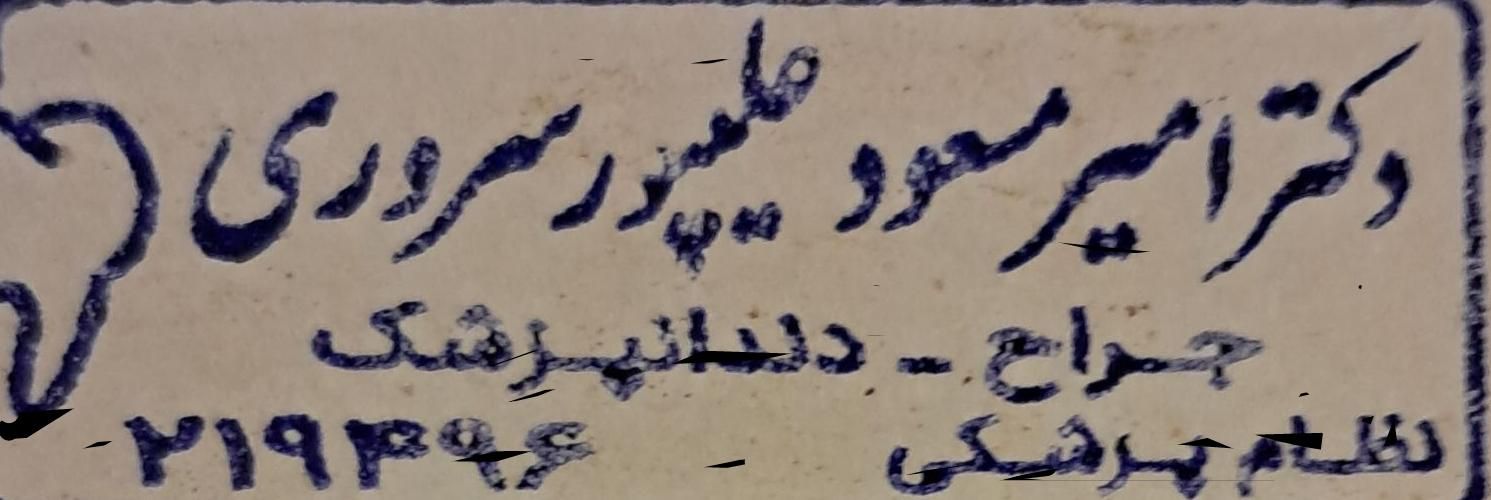 دکتر امیر مسعود سروری
جراح - دندانپزشک
نظام پزشکی ۲۱۹۴۹۶